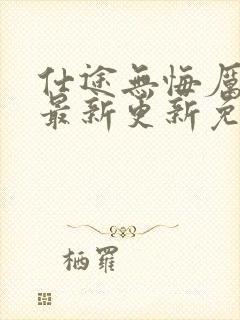 仕途無悔厲
最新更新免
栖羅